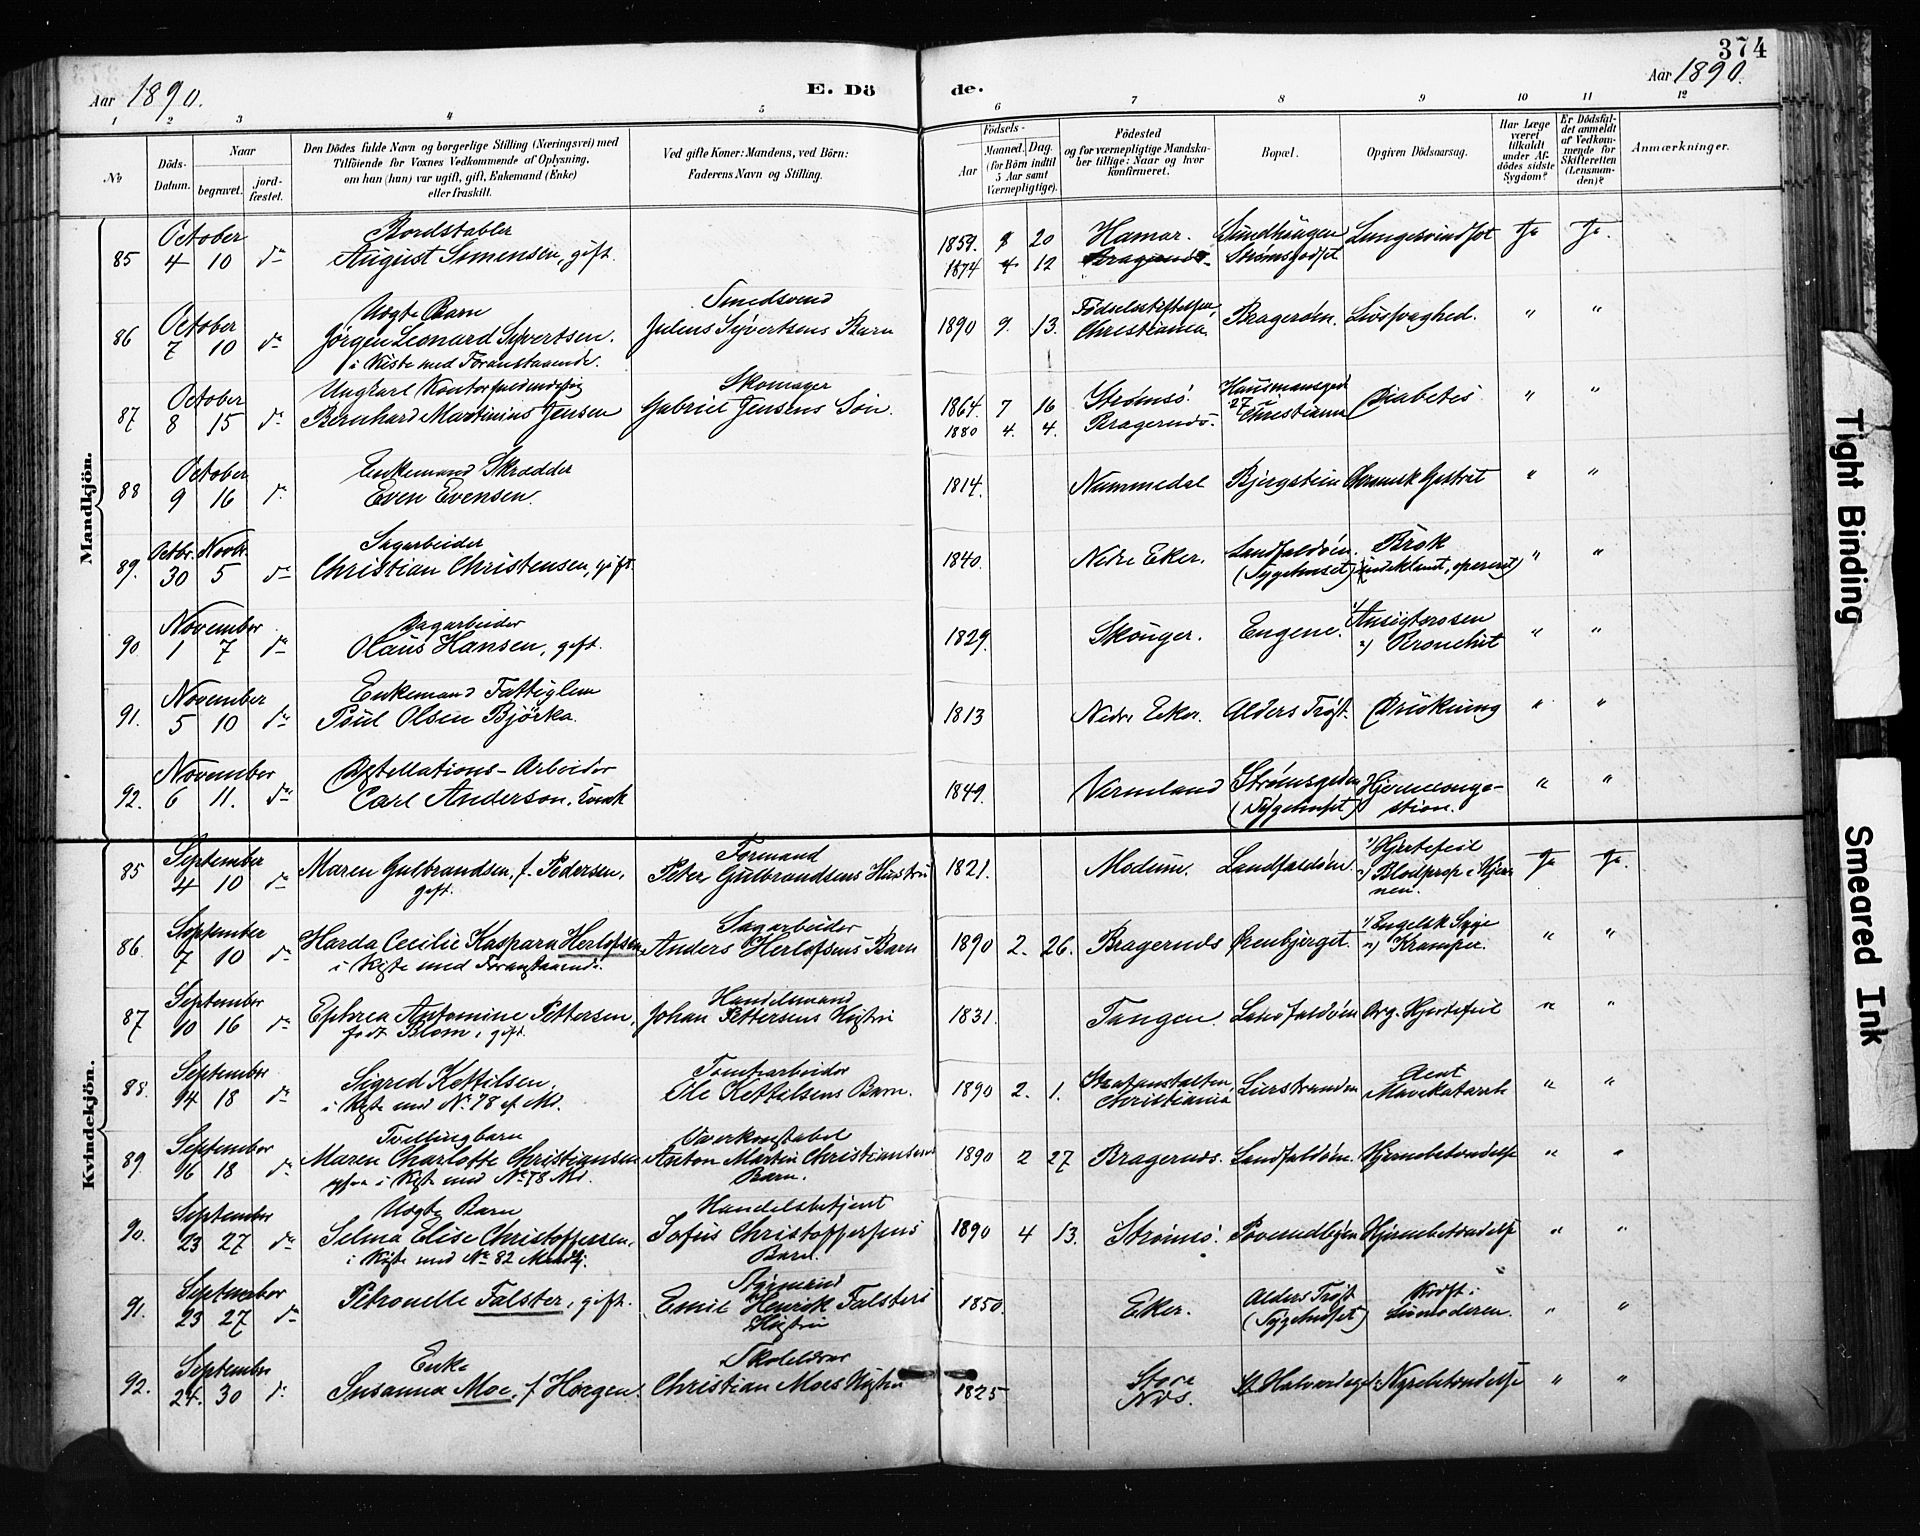 374
Aar 1890.
E. Dö
de.
Aar 1890.
1 2 3 4 5 6 7 8 9 10 11 12
№
Döds-
Datum.
Naar
begravet.
jord-
fæstet.
Den Dödes fulde Navn og borgerlige Stilling (Næringsvei) med
Tilföiende for Voxnes Vedkommende af Oplysning,
om han (hun) var ugift, gift, Enkemand (Enke)
eller fraskilt.
Ved gifte Koner: Mandens, ved Börn:
Faderens Navn og Stilling.
Födsels-
Aar
Maaned. Dag.
(for Börn indtil
5 Aar samt
Værnepligtige).
Födested
og for værnepligtige Mandska-
ber tillige: Naar og hvor
konfirmeret.
Bopæl.
Opgiven Dödsaarsag.
Har Læge
været
tilkaldt
under Af-
dödes sidste
Sygdom?
Er Dödsfal-
det anmeldt
af Vedkom-
mende for
Skifteretten
(Lensman-
den)?
Anmærkninger.
Mandkjön.
85 October 4 10 do
Bordstabler
August Simensen, gift.
1859. 8 20 Hamar.
1874 4 12 Bragernes
Strømsgodset Lungesvindsot Ja Ja.
86 October 7 10 do
Uægte Barn
Jørgen Leonard Syvertsen.
i Kiste med Foranstaaende.
Smedsvend
Julens Syvertsens Barn
1890 9. 13. Fødselsstiftelsen, Christiania
Bragerøen. Livssvaghed. " "
87 October 8 15 do
Ungkarl
Bernhard Martinius Jensen
Skomager
Gabriel Jensens Søn.
1864. 7 16 Strømsö.
1880 4. 4. Bragernes.
Hausmansgd 27 Christiania Diabetes " "
88 October 9 16 do
Enkemand Skrædder
Even Evensen.
1814. Nummedal Bjergstein Chronisk Gastrit " "
89. Octbr. 30 Novbr. 5 do
Sagarbeider
Christian Christensen, gift.
1840. Nedre Eker. Landfaldøen. (Sygehuset)
Brok
(indeklemt, opereret) " "
90 November 1 7 do
Dagarbeider
Olaus Hansen, gift.
1829. Skouger. Engene.
1) Ansigtsrosen
2) Bronchit " "
91. November 5 10 do
Enkemand Fattiglem
Poul Olsen Björka.
1813 Nedre Eker. Alders Trøst. Drukning " "
92. November 6 11. do
Destellations-Arbeider
Carl Anderson. Enk
1849. Vermland Strømsgaden (Sygehuset)
Hjernecongestion. " "
Kvindekjön.
85 September 4 10 do
Maren Gulbrandsen, f. Pedersen,
gift.
Formand
Peter Gulbrandsens Hustru
1821. Modum. Landfaldøen.
1) Hjertefeil
2) Blodprop i Hjernen. Ja Ja.
86. September 7 10 do
Harda Cecilie Kaspara Herlofsen
i Kiste med Foranstaaende.
Sagarbeider
Anders Herlofsens Barn
1890 2. 26. Bragernes Ørenbjerget.
1) Engelsk Syge
2) Kramper. " "
87 September 10 16 do
Ephrea Antomine Pettersen,
født Blom, gift.
Handelsmand
Johan Pettersens Hustru
1831. Tangen. Landfaldøen Org. Hjertefeil " "
88. September 14 18 do
Sigred Kettilsen.
i Kiste med No. 78 af M.
Tomtearbeider
Ole Kettilsens Barn.
1890 2. 1. Strafanstalten, Christiania
Lierstranden Acut
Mavekatarrh " "
89. September 16 18 do
Tvillingbarn
Maren Charlotte Christiansen
i Kiste med No 78 M.
Overkonstabel
Anton Martin Christiansens
Barn.
1890 2 27 Bragernes. Landfaldøen. Hjernebetændelse " "
90. September 23 27 do
Uægte Barn
Selma Elise Christoffersen,
i Kiste med No 82 Mandkj.
Handelsbetjent
Sofus Christoffersens
Barn.
1890 4 13. Strømsö. Hjernebetændelse " "
91. September 23 27 do
Petronelle Falster, gift.
Styrmand
Emil Henrik Falsters
Hustru
1850. Eker. Alders Trøst (Sygehuset)
Kræft i
Livmoderen. " "
92. September 24. 30 do
Enke
Susanna Moe, f. Hørgen.
Skolelærer
Christian Moes Hustru
1825 Store
Næs.
St. Halvardsgd. Nyrebetændelse " "
Tight Binding
Smeared Ink